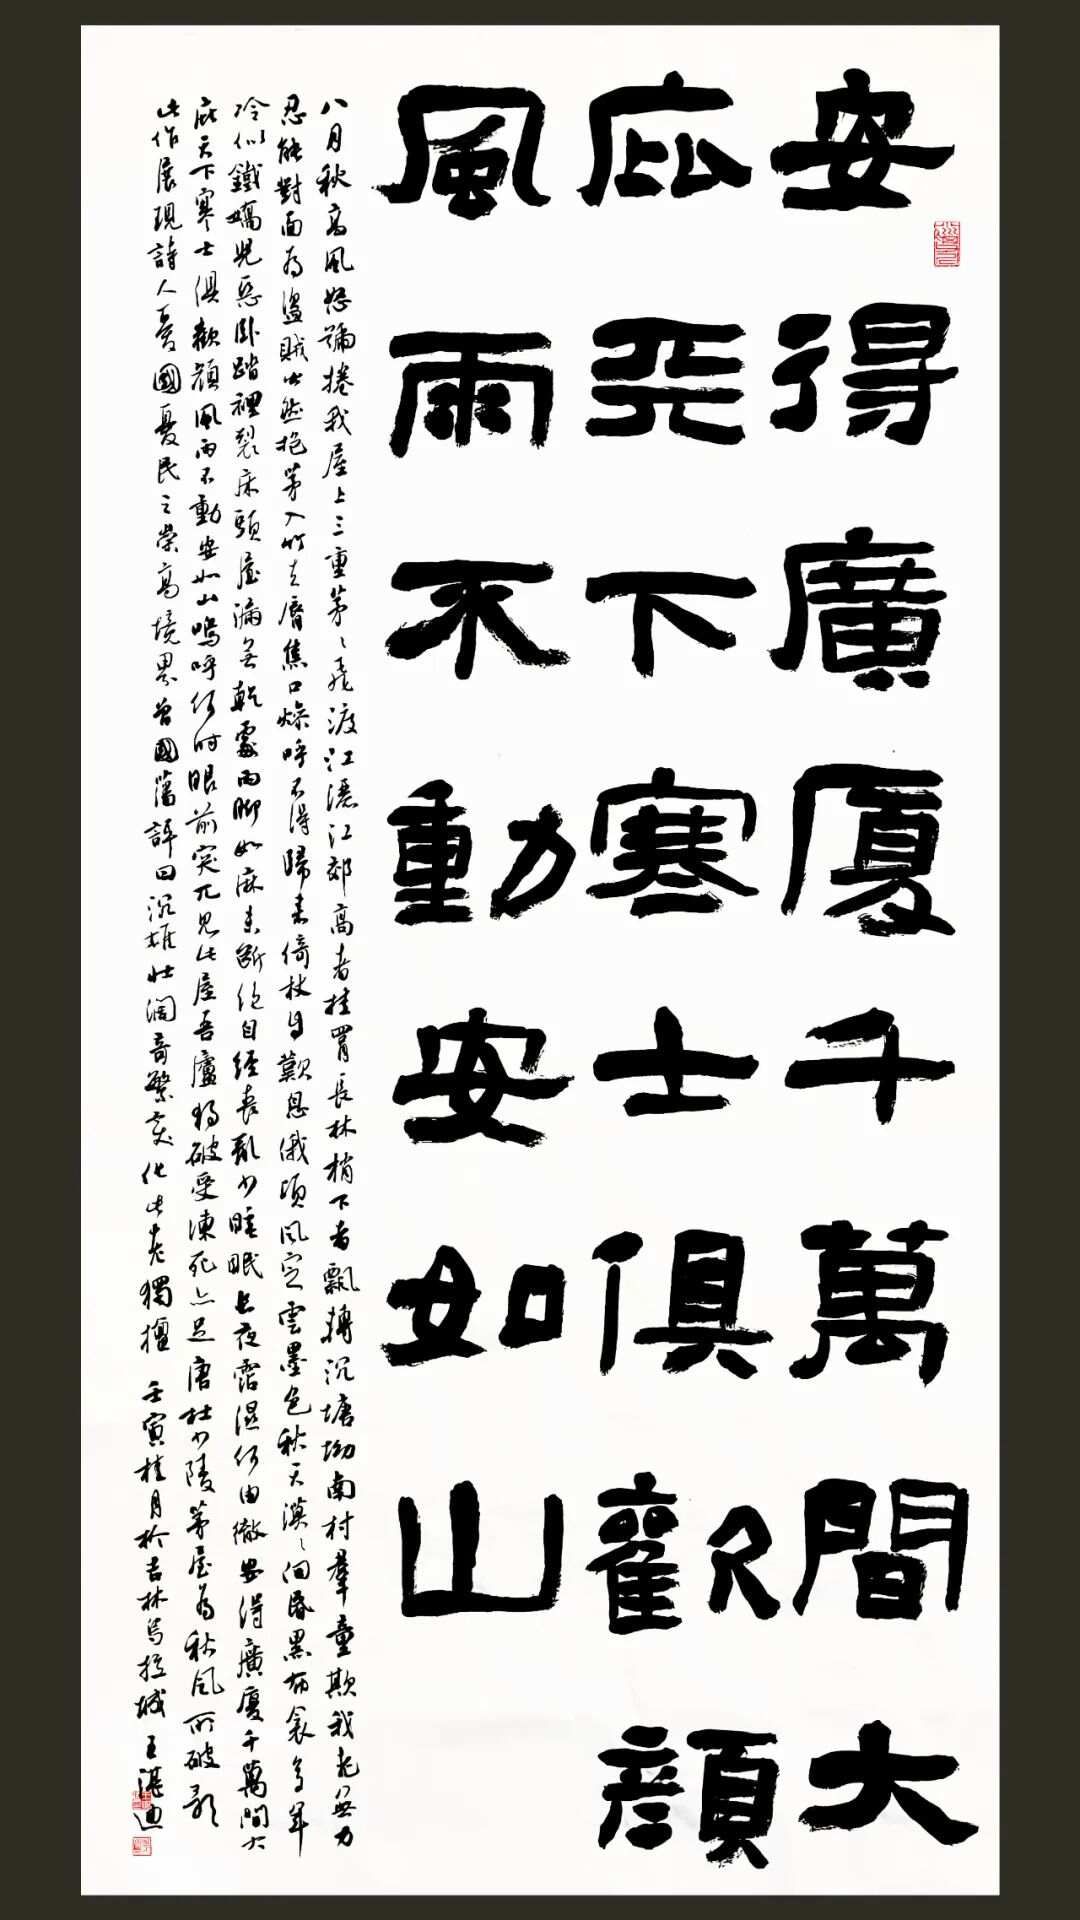 安得廣厦千萬間大
庇天下寒士俱歡顔
風雨不動安如山
八月秋高風怒號捲我屋上三重茅〻飛渡江灑江郊高者挂罥長林梢下者飄轉沉塘坳南村羣童欺我老無力
忍能對面為盜賊公然抱茅入竹去脣焦口燥呼不得歸来倚杖自歎息俄頃風定雲墨色秋天漠〻向昏黑布衾多年
冷似鐵嬌兒惡卧踏裡裂床頭屋漏無乾處雨脚如麻未斷絶自經喪亂少睡眠長夜霑濕何由徹安得廣廈千萬間大
庇天下寒士俱歡顔風雨不動安如山嗚呼何時眼前突兀見此屋吾廬獨破受凍死亦足 唐杜少陵茅屋為秋風所破歌
此作展現詩人愛國憂民之崇高境界曾國藩評曰沉雄壯闊奇繁變化此老獨擅 壬寅桂月於吉林烏拉城 王湛迪